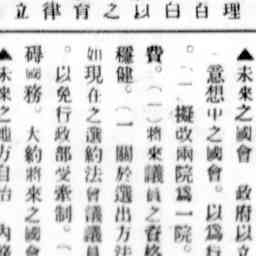 理白白以之育律立
▲未來之國會　政府以立
意想中之國會。以爲行
擬改兩院爲一院。
費。將來議員之資格
穩健。關於選出方法
如現在之選約法會議議員
。以免行政部受牽制。
碍國務。大約將來之國會
▲未來之地方自治　內務